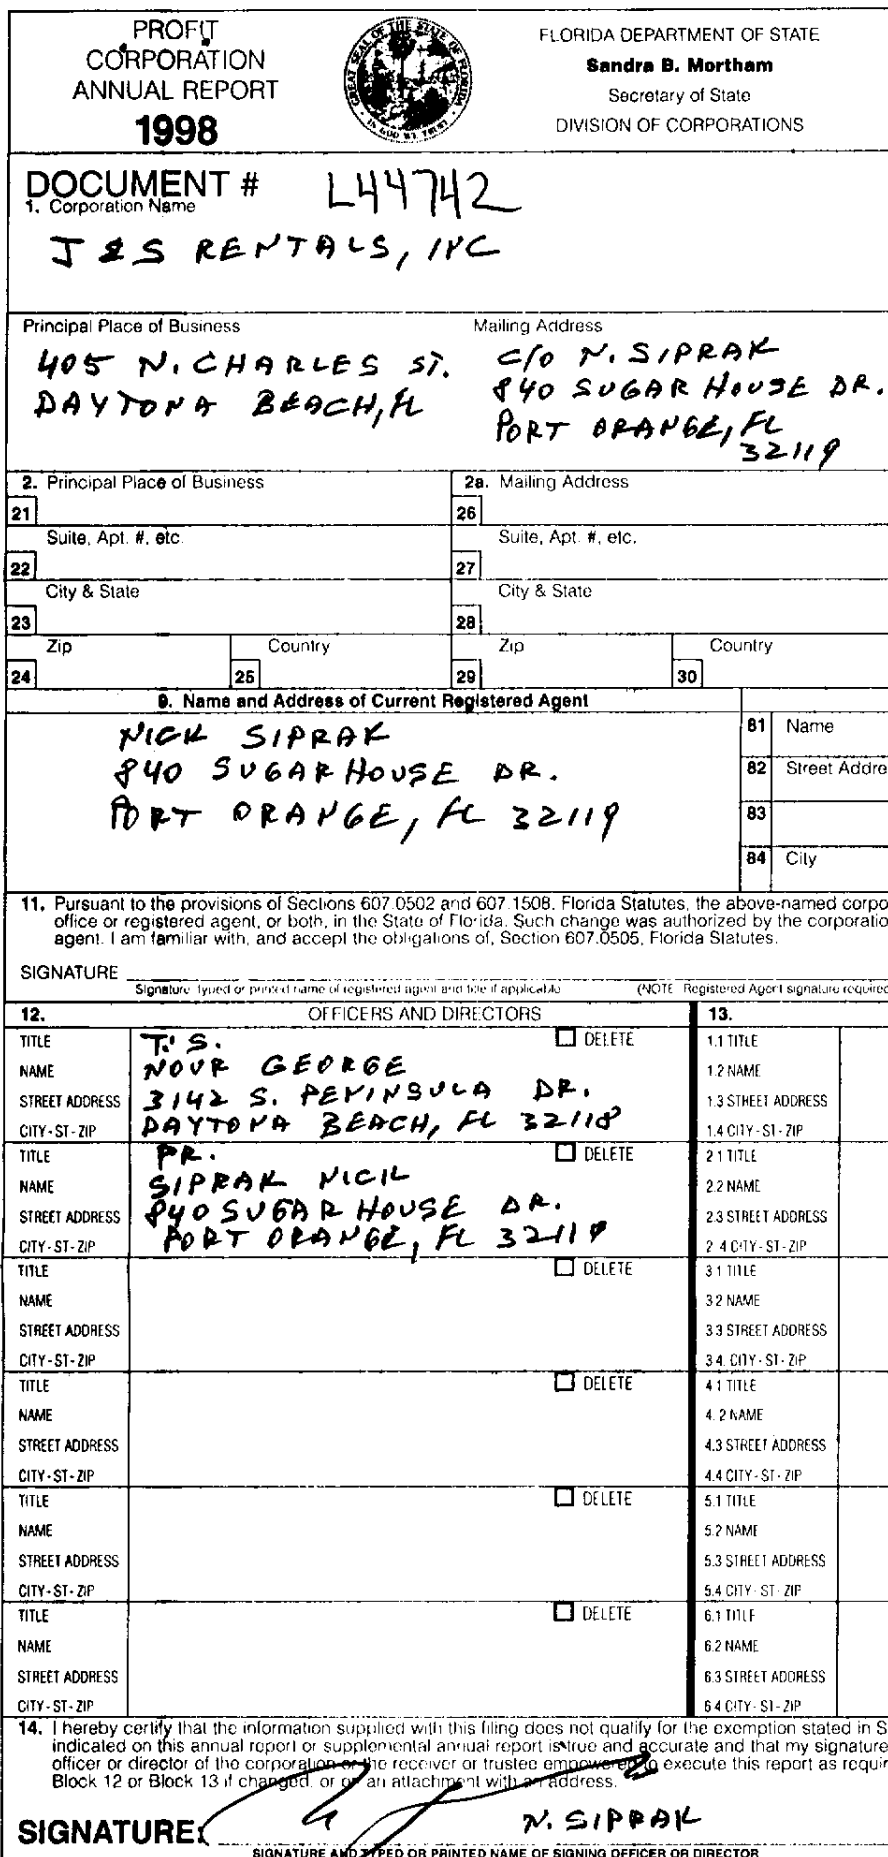 PROFIT
CORPORATION
ANNUAL REPORT
1998
GREAT SEAL OF THE STATE OF FLORIDA
IN GOD WE TRUST
FLORIDA DEPARTMENT OF STATE
Sandra B. Mortham
Secretary of State
DIVISION OF CORPORATIONS
DOCUMENT # L44742
1. Corporation Name
J & S RENTALS, INC
Principal Place of Business
405 N. CHARLES ST.
DAYTONA BEACH, FL
Mailing Address
C/O N. SIPRAK
840 SUGAR HOUSE DR.
PORT ORANGE, FL
32119
2. Principal Place of Business 2a. Mailing Address
21 26
Suite, Apt. #, etc. Suite, Apt. #, etc.
22 27
City & State City & State
23 28
Zip Country Zip Country
24 25 29 30
9. Name and Address of Current Registered Agent
NICK SIPRAK
840 SUGAR HOUSE DR.
PORT ORANGE, FL 32119
81 Name
82 Street Addre
83
84 City
11. Pursuant to the provisions of Sections 607.0502 and 607.1508, Florida Statutes, the above-named corpo
office or registered agent, or both, in the State of Florida. Such change was authorized by the corporatio
agent. I am familiar with, and accept the obligations of, Section 607.0505, Florida Statutes.
SIGNATURE
Signature, typed or printed name of registered agent and title if applicable (NOTE Registered Agent signature required
12. OFFICERS AND DIRECTORS 13.
TITLE T. S. DELETE 1.1 TITLE
NAME NOUR GEORGE 1.2 NAME
STREET ADDRESS 3142 S. PENINSULA DR. 1.3 STREET ADDRESS
CITY-ST-ZIP DAYTONA BEACH, FL 32118 1.4 CITY-ST-ZIP
TITLE PR. DELETE 2.1 TITLE
NAME SIPRAK NICK 2.2 NAME
STREET ADDRESS 840 SUGAR HOUSE DR. 2.3 STREET ADDRESS
CITY-ST-ZIP PORT ORANGE, FL 32119 2.4 CITY-ST-ZIP
TITLE DELETE 3.1 TITLE
NAME 3.2 NAME
STREET ADDRESS 3.3 STREET ADDRESS
CITY-ST-ZIP 3.4. CITY-ST-ZIP
TITLE DELETE 4.1 TITLE
NAME 4.2 NAME
STREET ADDRESS 4.3 STREET ADDRESS
CITY-ST-ZIP 4.4 CITY-ST-ZIP
TITLE DELETE 5.1 TITLE
NAME 5.2 NAME
STREET ADDRESS 5.3 STREET ADDRESS
CITY-ST-ZIP 5.4 CITY-ST-ZIP
TITLE DELETE 6.1 TITLE
NAME 6.2 NAME
STREET ADDRESS 6.3 STREET ADDRESS
CITY-ST-ZIP 6.4 CITY-ST-ZIP
14. I hereby certify that the information supplied with this filing does not qualify for the exemption stated in S
indicated on this annual report or supplemental annual report is true and accurate and that my signature
officer or director of the corporation or the receiver or trustee empowered to execute this report as requir
Block 12 or Block 13 if changed, or on an attachment with an address.
SIGNATURE: N. SIPRAK
SIGNATURE AND TYPED OR PRINTED NAME OF SIGNING OFFICER OR DIRECTOR